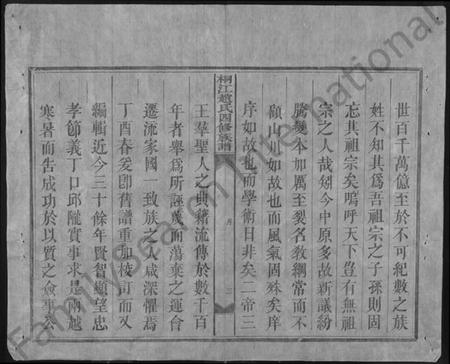 世百千萬億至於不可紀數之族
姓不知其爲吾祖宗之子孫則固
忘其祖宗矣嗚呼天下豈有無祖
宗之人哉矧今中原多故新議紛
騰變本加厲至裂名敎綱常而不
顧山川如故也而風氣固殊矣庠
序如故也而學術日非矣二帝三
桐江趙氏四修族譜
王羣聖人之典藉流傳於數千百
年者舉爲所誣蔑而蕩棄之運會
遷流家國一致族之人咸深懼焉
丁酉春爰卽舊譜重加校訂而又
編輯近今三十餘年賢智顯望忠
孝節義丁口邱隴實事求是兩越
寒暑而告成功於以質之僉事公
Family International